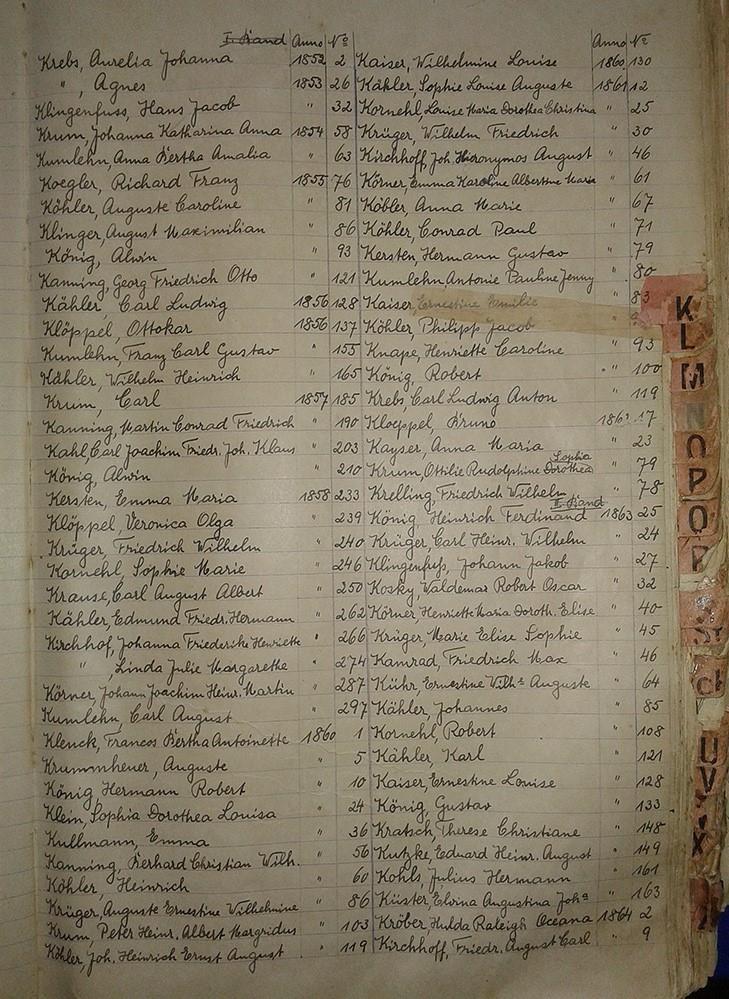 I. Band Anno Nº
Krebs, Aurelia Johanna 1852 2
" , Agnes 1853 26
Klingenfuss, Hans Jacob " 32
Krum, Johanna Katharina Anna 1854 58
Kumlehn, Anna Bertha Amalia " 63
Koegler, Richard Franz 1855 76
Köhler, Auguste Caroline " 81
Klinger, August Maximilian " 86
König, Alwin " 93
Kanning, Georg Friedrich Otto " 121
Kähler, Carl Ludwig 1856 128
Klöppel, Ottokar 1856 137
Kumlehn, Franz Carl Gustav " 155
Kähler, Wilhelm Heinrich " 165
Krum, Carl 1857 185
Kanning, Martin Conrad Friedrich " 190
Kahl, Carl Joachim Friedr. Joh. Klaus " 203
König, Alwin " 210
Kersten, Emma Maria 1858 233
Klöppel, Veronica Olga " 239
Krüger, Friedrich Wilhelm " 240
Kornehl, Sophie Marie " 246
Krause, Carl August Albert " 250
Kähler, Edmund Friedr. Hermann " 262
Kirchhof, Johanna Friederike Henriette " 266
" , Linda Julie Margarethe " 274
Körner, Johann Joachim Heinr. Martin " 287
Kumlehn, Carl August " 297
Klenck, Francos Bertha Antoinette 1860 1
Krummheuer, Auguste " 5
König Hermann Robert " 10
Klein, Sophia Dorothea Louisa " 24
Kullmann, Emma " 36
Kanning, Berhard Christian Wilh. " 56
Köhler, Heinrich " 60
Krüger, Auguste Ernestine Wilhelmine " 86
Krum, Peter Heinr. Albert Margridus " 103
Köhler, Joh. Heinrich Ernst August " 119
Anno Nº
Kaiser, Wilhelmine Louise 1860 130
Kähler, Sophie Louise Auguste 1861 12
Kornehl, Louise Maria Dorothea Christina " 25
Krüger, Wilhelm Friedrich " 30
Kirchhoff, Joh. Hieronymos August " 46
Körner, Emma Karoline Albertine Marie " 61
Köbler, Anna Marie " 67
Köhler, Conrad Paul " 71
Kersten, Hermann Gustav " 79
Kumlehn, Antonie Pauline Jenny " 80
Kaiser, Ernestine Emilie " 83
Köhler, Philipp Jacob "
Knape, Henriette Caroline " 93
König, Robert " 100
Krebs, Carl Ludwig Anton " 119
Kloeppel, Bruno 17
Kayser, Anna Maria " 23
Krum, Ottilie Rudolphine Sophia Dorothea " 79
Krelling, Friedrich Wilhelm " 78
II. Band
König, Heinrich Ferdinand 1863 25
Krüger, Carl Heinr. Wilhelm " 24
Klingenfuss, Johann Jakob " 27
Kosky, Waldemar Robert Oscar " 32
Körner, Henriette Maria Doroth. Elise " 40
Krüger, Marie Elise Sophie " 45
Kamrad, Friedrich Max " 46
Kühr, Ernestine Wilhe Auguste " 64
Kähler, Johannes " 85
Kornehl, Robert " 108
Kähler, Karl " 121
Kaiser, Ernestine Louise " 128
König, Gustav " 133
Kratsch, Therese Christiane " 148
Kutzke, Eduard Heinr. August " 149
Kohls, Julius Hermann " 161
Küster, Elvina Augustina Joha " 163
Kröber, Hulda Raleigh Oceana 1864 2
Kirchhoff, Friedr. August Carl " 9
K
L
M
N
O
P
U
V
X